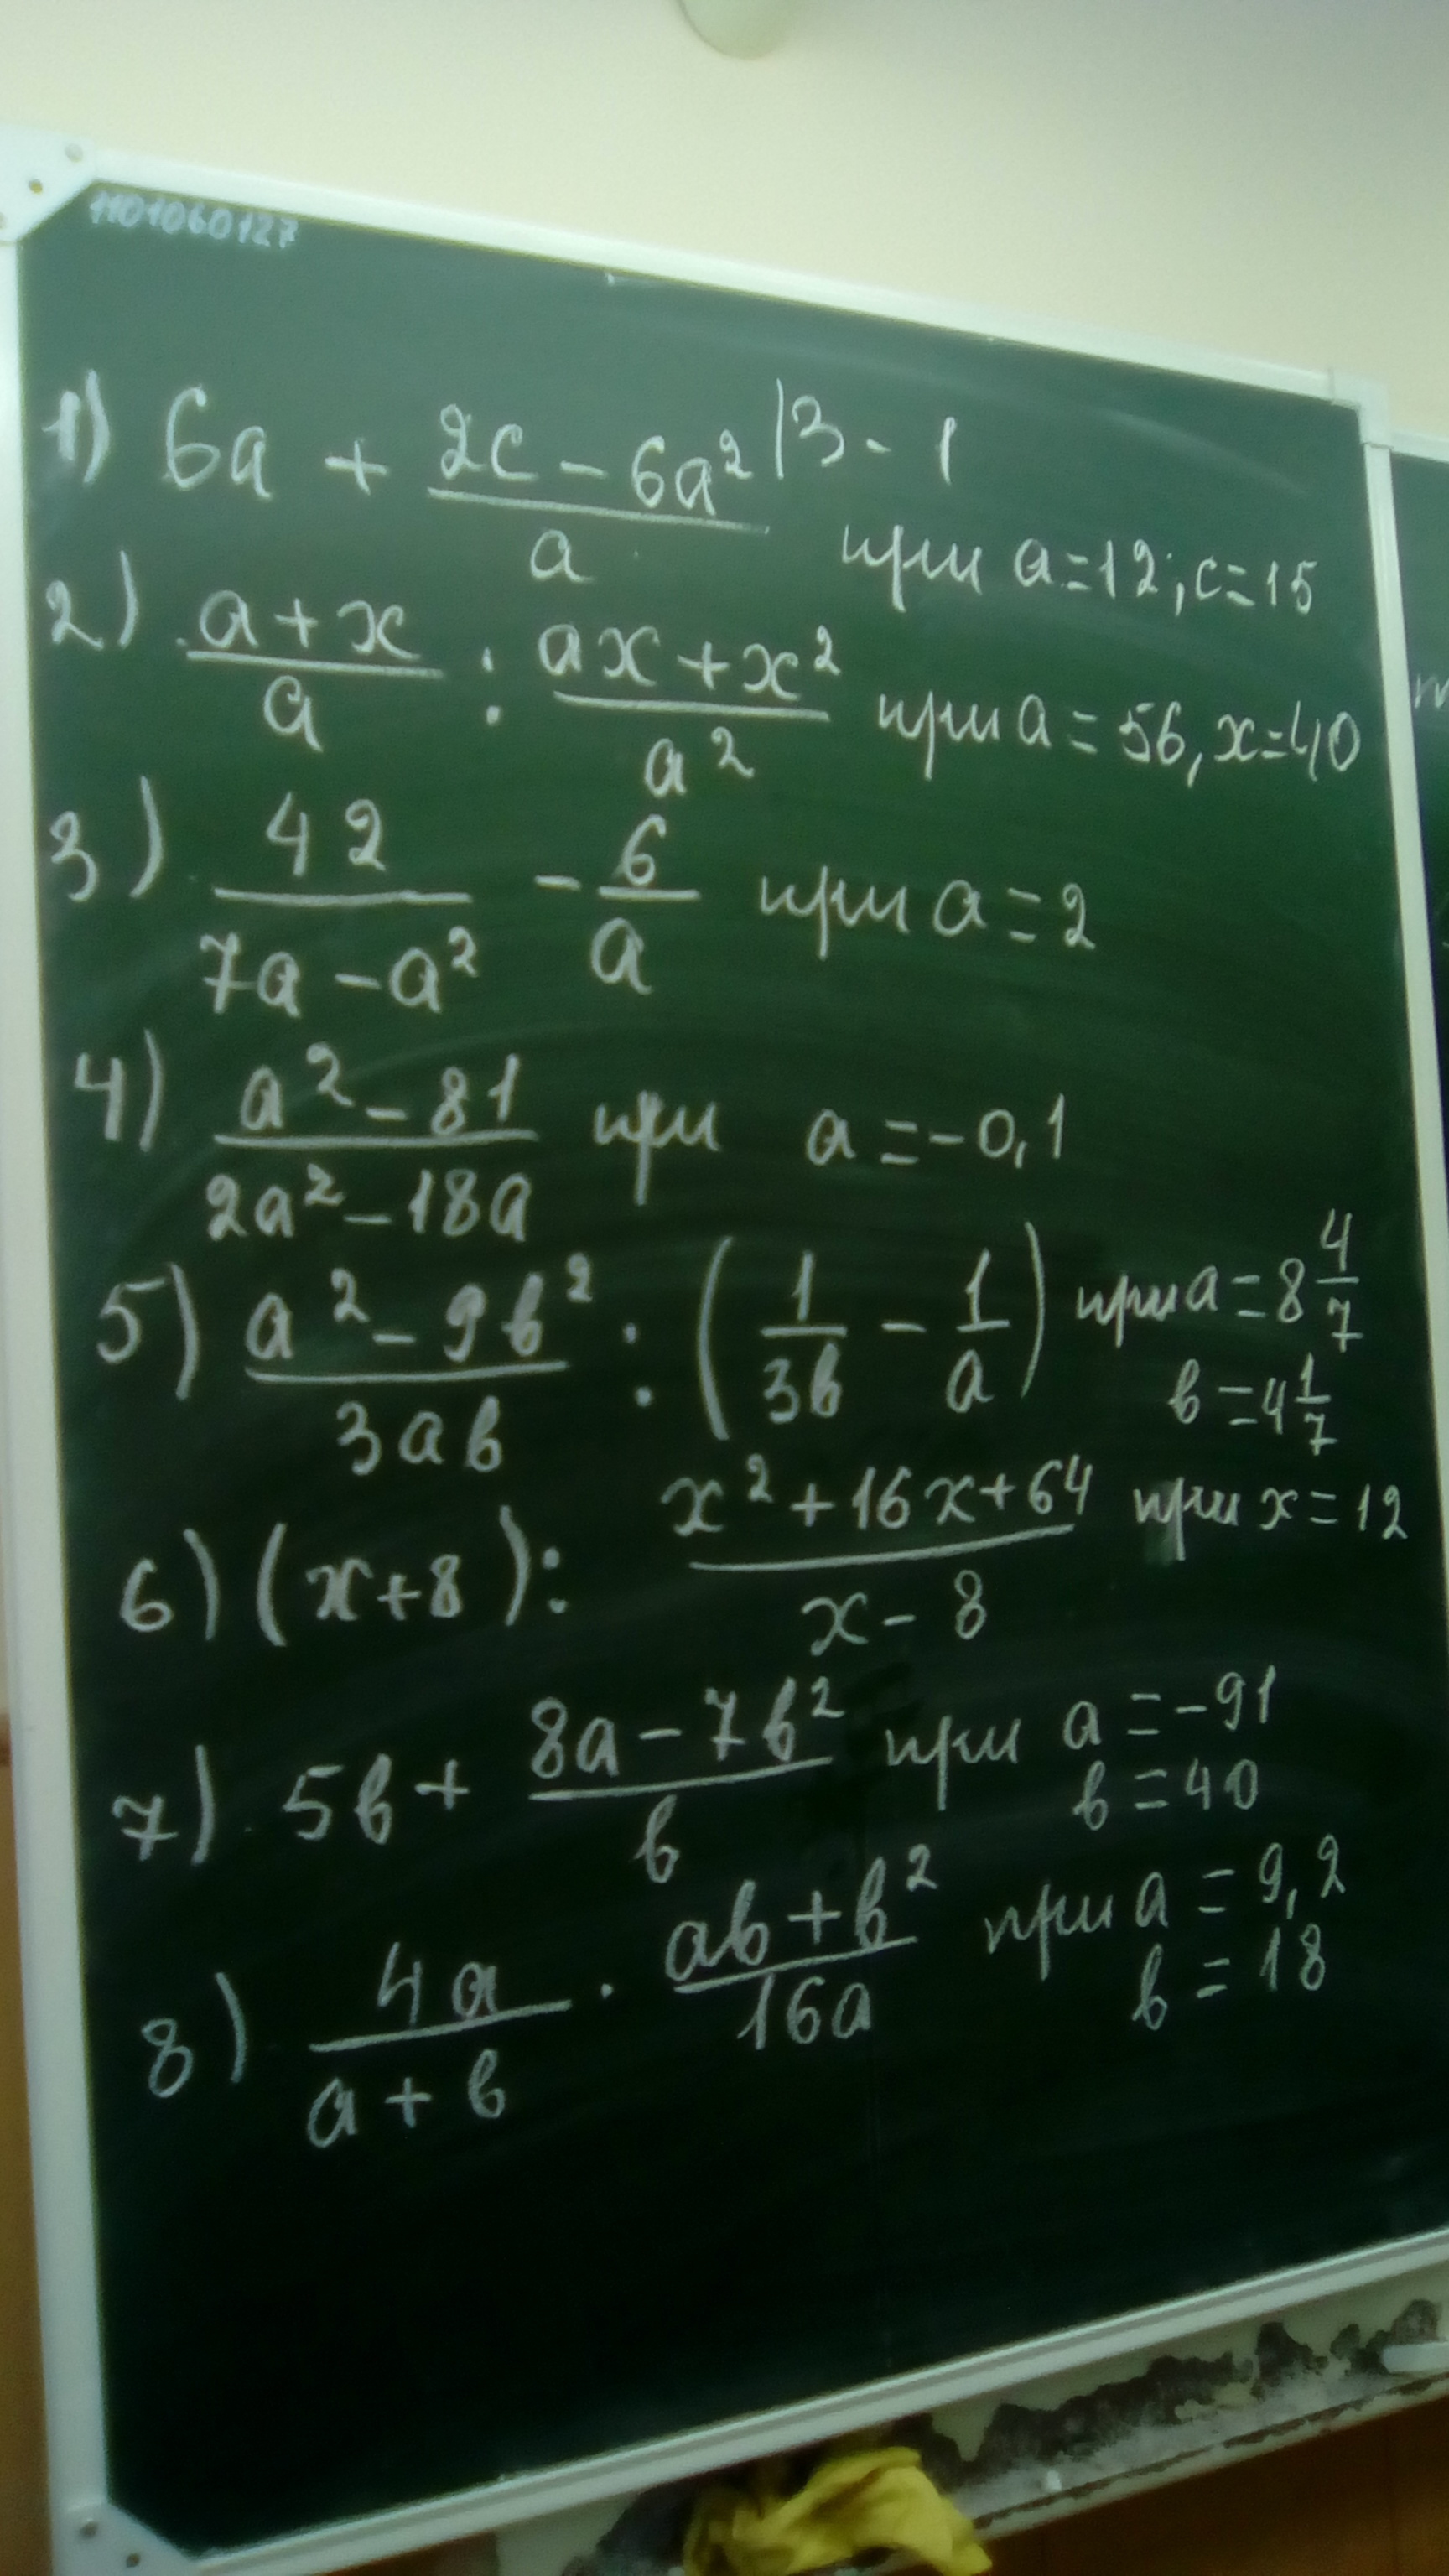 1101060127
1) 6a + (2c - 6a²)/a |3 - 1 при a=12; c=15
2) (a+x)/a : (ax+x²)/a² при a = 56, x=40
3) 42/(7a-a²) - 6/a при a=2
4) (a²-81)/(2a²-18a) при a=-0,1
5) (a²-9b²)/(3ab) : (1/(3b) - 1/a) при a=8 4/7
b=4 1/7
6) (x+8) : (x²+16x+64)/(x-8) при x=12
7) 5b + (8a-7b²)/b при a=-91
b=40
8) 4a/(a+b) · (ab+b²)/(16a) при a=9,2
b=18